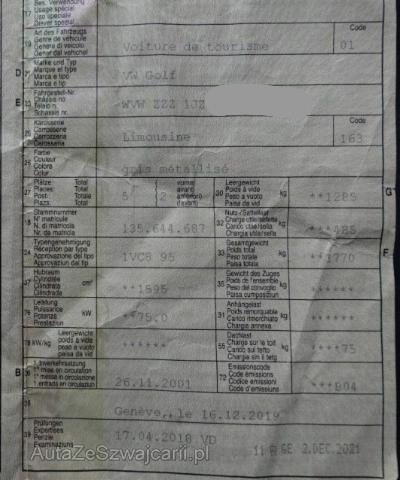 Bes. Verwendung
Usage spécial
Uso speciale
Diever spezial
Art des Fahrzeugs
Genre de véhicule
Genere di veicolo
Gener dal vehichel
19
Voiture de tourisme
Code
01
D
21
Marke und Typ
Marque et type
Marca e tipo
Marca e tip
VW Golf
E
23
Fahrgestell-Nr.
Châssis no
Telaio n.
Schassis nr.
WVW ZZZ 1JZ
Karosserie
Carrosserie
Carrozzeria
Carossaria
Limousine
Code
163
Farbe
Couleur
Colore
Color
gris métallisé
27
Plätze Total
Places: Total
Posti: Totale
Plazs: Total
5
vorne
avant
anteriori
davant
2
30
Leergewicht
Poids à vide
Peso a vuoto
Paisa da vid
kg
**1285
G
18
Stammnummer
N° matricule
N. di matricola
Nr. da matricla
135.644.687
32
Nutz-/Sattellast
Charge utile/sellette
Carico utile/sella
Chargia utila/sella
kg
***485
Typengenehmigung
Réception par type
Approvazione del tipo
Approvaziun dal tip
1VC6 95
33
Gesamtgewicht
Poids total
Peso totale
Paisa totala
kg
**1770
F
Hubraum
Cylindrée
Cilindrata
Cilindrada
cm³
**1595
35
Gewicht des Zuges
Poids de l'ensemble
Peso del convoglio
Paisa cumposiziun
kg
******
Leistung
Puissance
Potenza
Prestaziun
kW
**75.0
31
Anhängelast
Poids remorquable
Carico rimorchiato
Chargia annexa
kg
******
78
kW/kg
Leergewicht
poids à vide
peso a vuoto
paisa da vid
******
55
Dachlast
Charge sur le toit
Carico sul tetto
Chargia sin il tetg
kg
****75
B
36
1. Inverkehrsetzung
1re mise en circulation
1a messa in circolazione
1. entrada en circulaziun
26.11.2001
72
Emissionscode
Code émissions
Codice emissioni
Code d'emissiuns
***B04
38
Genève, le 16.12.2019
39
Prüfungen
Expertises
Perizie
Examinaziuns
17.04.2018 VD
GE 2.DEC.2021
AutaZeSzwajcarii.pl